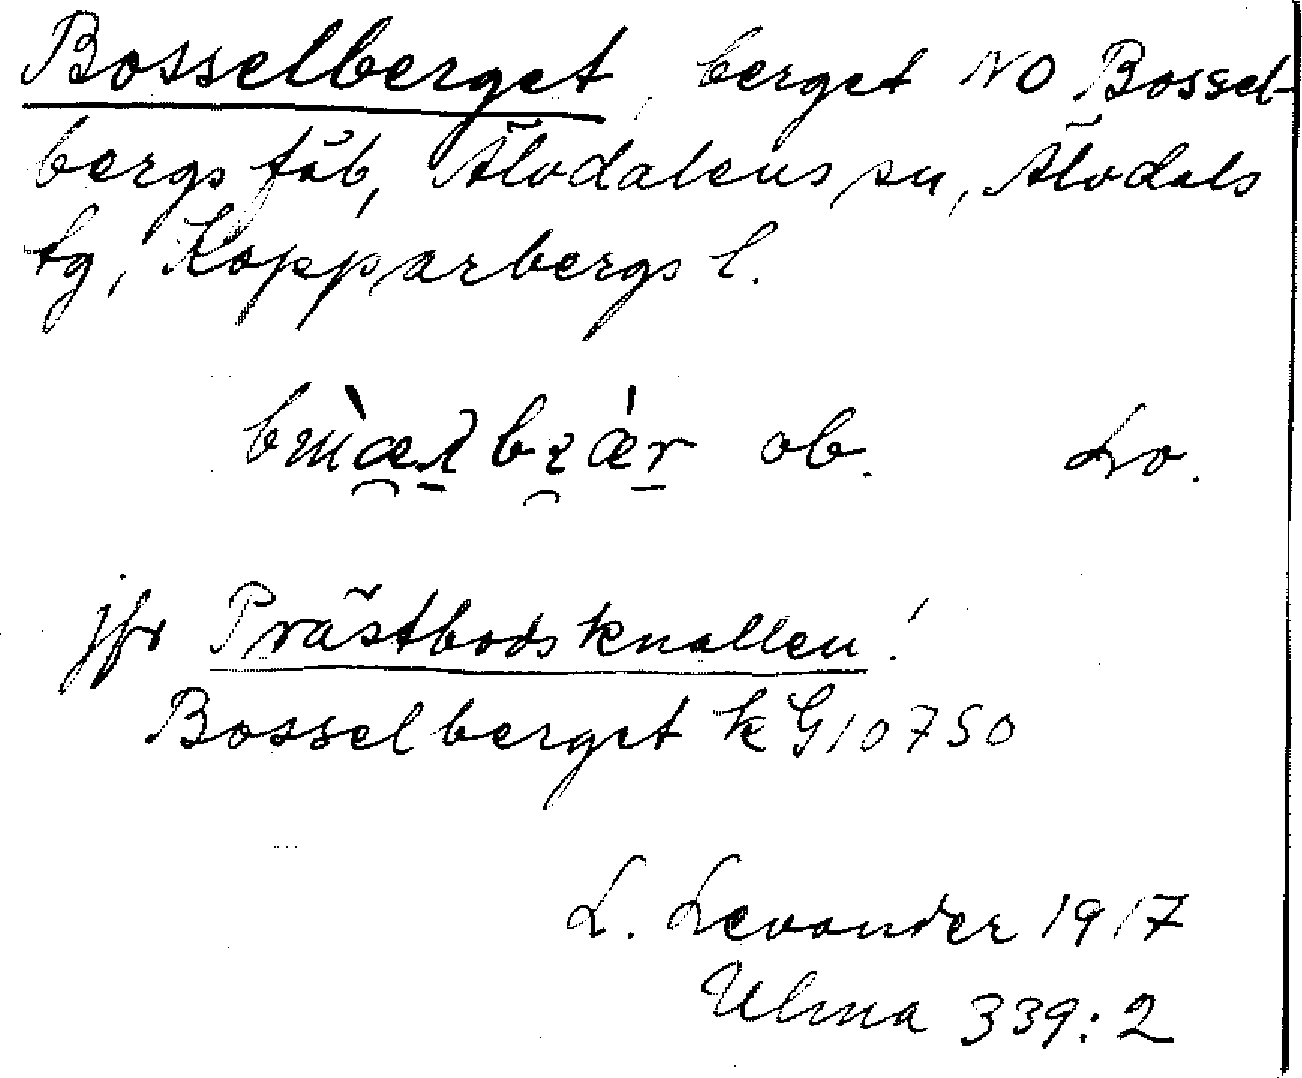 Bosselberget, berget NO Bossel-
bergs fäb, Älvdalens sn, Älvdals
tg, Kopparbergs l.
ob. Lo.
jfr Prästbodsknallen!
Bosselberget k G 10750
L. Levander 1917
Ulma 339:2